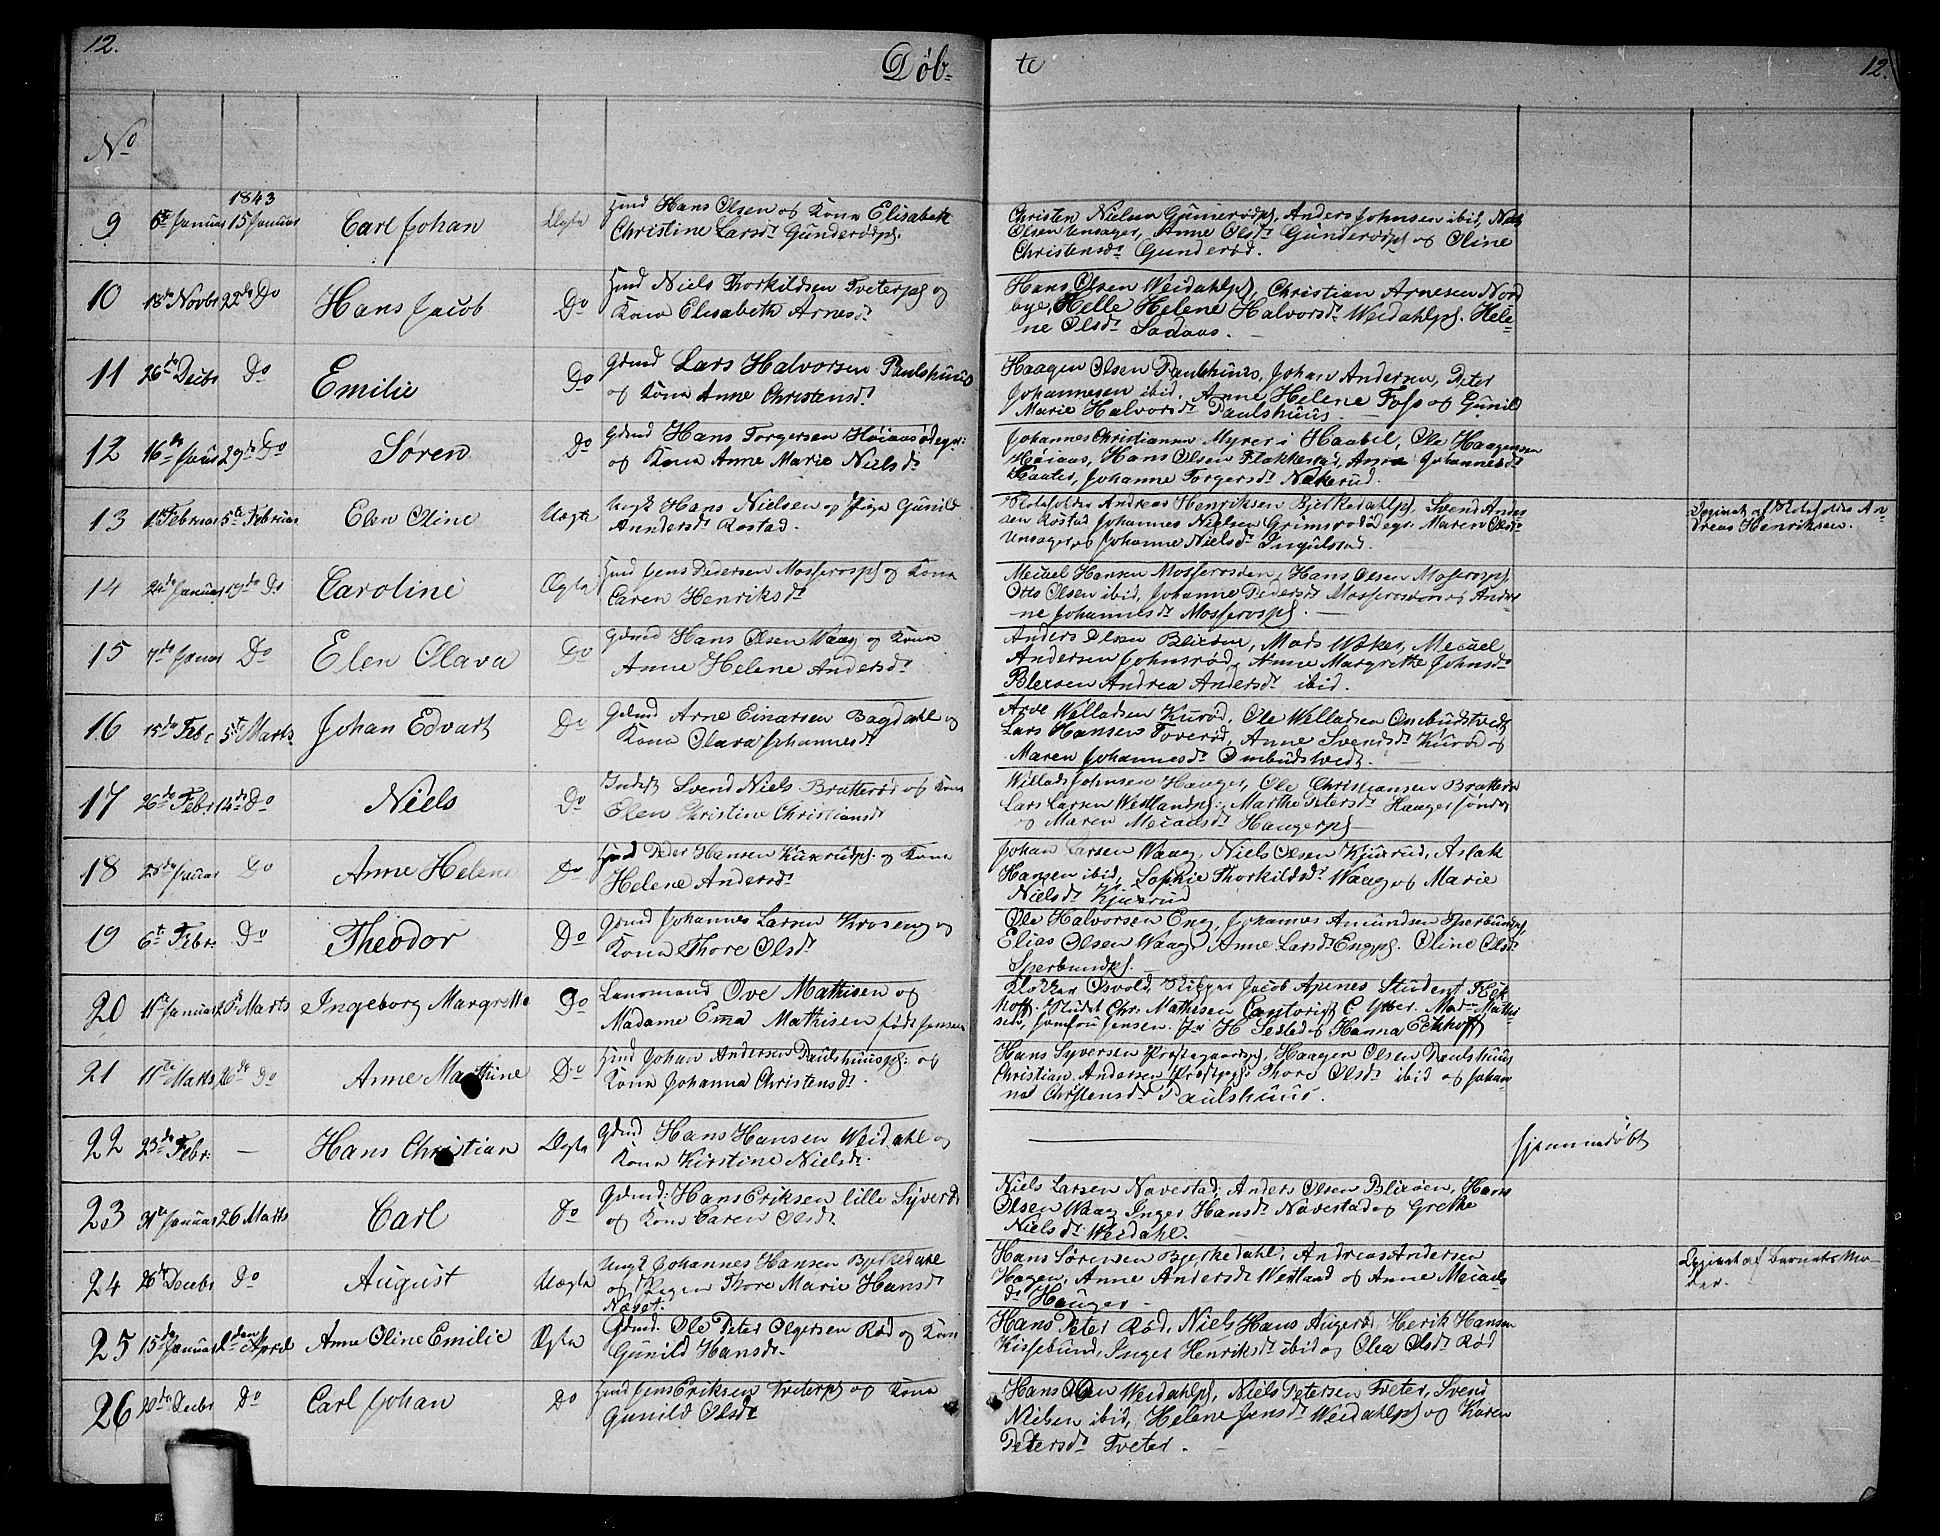 12.
Døb-
te
12.
No
1843
9 6te Januar 15 Januar Carl Johan Ægte Hmd Hans Olsen og Kone Elisabeth
Christine Larsdr Gunderødpl.
Christen Nielsen Gunnerødpl, Anders Johnsen ibid, Niels
Olsen Unsager, Anne Olsdr Gunderødpl og Oline
Christensdr Gunderød.
10 18de Novbr 22de Do Hans Jacob Do Hmd Niels Thorkildsen Tveterpl og
Kone Elisabeth Arnesdr
Hans Olsen Weidahlpl, Christian Arnesen Nord
bye, Helle Helene Halvorsdr Weidahlpl. Hele-
ne Olsdr Sadaas.
11 26de Decbr Do Emilie Do Gdmd Lars Halvorsen Paulshuus
og Kone Anne Christensdr
Haagen Olsen Paulshuus, Johan Andersen, Peter
Johannesen ibid, Anne Helene Foss og Gunild
Marie Halvorsdr Paulshuus.
12 16de Januar 29de Do Søren Do Gdmd Hans Torgersen Høiaas ødegr:
og Kone Anne Marie Nielsdr
Johannes Christiansen Myrer i Haabel, Ole Haagensen
Høiaas, Hans Olsen Flakkestad, Anne Johannesdr
Johanne Torgersdr Nakerud.
13 1ste Februar 5te Februar Elen Oline Uægte Ungk Hans Nielsen og Pige Gunild
Anndersdr Rostad.
Andreas Henriksen Bjerkedahlpl, Svend Ander
sen Rostad Johannes Nielsen Grimsrødødegr. Maren Olsdr
Unsager og Johanne Nielsdr Ingulsrud.
Opgivet af An-
dreas Henriksen.
14 24de Januar 19de Do Caroline Ægte Hmd Jens Pedersen Mosserospl og Kone
Caren Henriksdr
Micael Hansen Mosserosden, Hans Olsen Mosserospl
Otto Olsen ibid, Johanne Pedersdr Mosserosden og Andri
ne Johannesdr Mosserospl.
15 7de Januar Do Elen Olava Do Gdmd Hans Olsen Waag og Kone
Anne Helene Andersdr
Anders Olsen Blixsøn, Mads Waker, Micael
Andersen Johnsrød, Anne Margrethe Johnsdr
Blixsøn Andrea Andersdr ibid.
16 15de Febr 5te Marts Johan Edvart Do Gdmd Arne Einarsen Bagdahl og
Kone Olava Johannesdr
Arve Willadsen Kurød, Ole Willadsen Ombudstvedt
Lars Hansen Toverød, Anne Svendsdr Kurød og
Maren Johannesdr Ombudstvedt.
17 26de Febr 12de Do Niels Do Inderst Svend Niels Bratterød og Kone
Elen Christine Christiansdr
Willads Johnsen Hauger, Ole Christiansen Bratterød
Lars Larsen Westlandpl: Marthe Petersdr Hauger søndre
og Maren Micaelsdr Haugerpl
18 25de Januar Do Anne Helene Do Hmd Peder Hansen Kuxerudpl. og Kone
Helene Andersdr
Johan Larsen Waag, Niels Olsen Kjuxrud, Aslak
Hansen ibid, Sophie Thorkildsdr Waag og Marie
Nielsdr Kjuxrud
19 6te Febr. Do Theodor Do Gdmd Johannes Larsen Kroseng og
Kone Thore Olsdr
Ole Halvorsen Eng, Johannes Amundsen Sperbundpl,
Elias Olsen Waag, Anne Larsdr Engpl. Oline Olsdr
Sperbundpl.
20 11te Januar Marts Ingeborg Margrethe Do Lensmand Ove Mathisen og
Madame Emma Mathisen født Jensen
Klokker Osvold, Skipper Jacob Apenes Student Eck
hoff, Student Chr. Mathisen C Ytter. Mad. Mathi
sen, Jomfru Jensen. H og Hanna Eckhoff
21 11te Marts 26de Do Anne Mathine Do Hmd Johan Andersen Paulshuuspl: og
Kone Johanna Christensdr
Hans Syversen Prestegaardspl, Haagen Olsen Paulshuus
Christian Andersen Prestegpl Thore Olsdr ibid og Johan
ne Christensdr Paulshuus.
22 23de Febr: — Hans Christian Ægte Gdmd Hans Hansen Weidahl og
Kone Kirstine Nielsdr.
hjemmedøbt
23 31te Januar 26 Marts Carl Do Gdmd: Hans Eriksen lille Syverød
og Kone Caren Olsdr
Niels Larsen Navestad, Anders Olsen Blixøen, Hans
Olsen Waag Inger Hansdr Navestad og Grethe
Nielsdr Weidahl.
24 26de Decbr Do August Uægte Ungk Johannes Hansen Bjerkedahl
og Pigen Thore Marie Hansdr
Næset.
Hans Sørensen Bjerkedahl, Andreas Andersen
Hagen, Anne Andersdr Westland og Anne Micaels
dr Hauger
Opgivet af Barnets Mo-
der.
25 15de Januar den April Anne Oline Emilie Ægte Gdmd. Ole Peter Olgersen Rød og Kone
Gunild Hansdr.
Hans Peter Rød, Niels Hans Augerød Henrik Hansen
Kissebund, Inger Henriksdr ibid og Olea Olsdr Rød
26 20de Decbr Do Carl Johan Do Hmd Jens Eriksen Tveterpl og Kone
Gunild Olsdr
Hans Olsen Weidahlpl, Niels Petersen Tveter, Svend
Nielsen ibid, Helene Jensdr Weidahlpl og Karen
Petersdr Tveter.